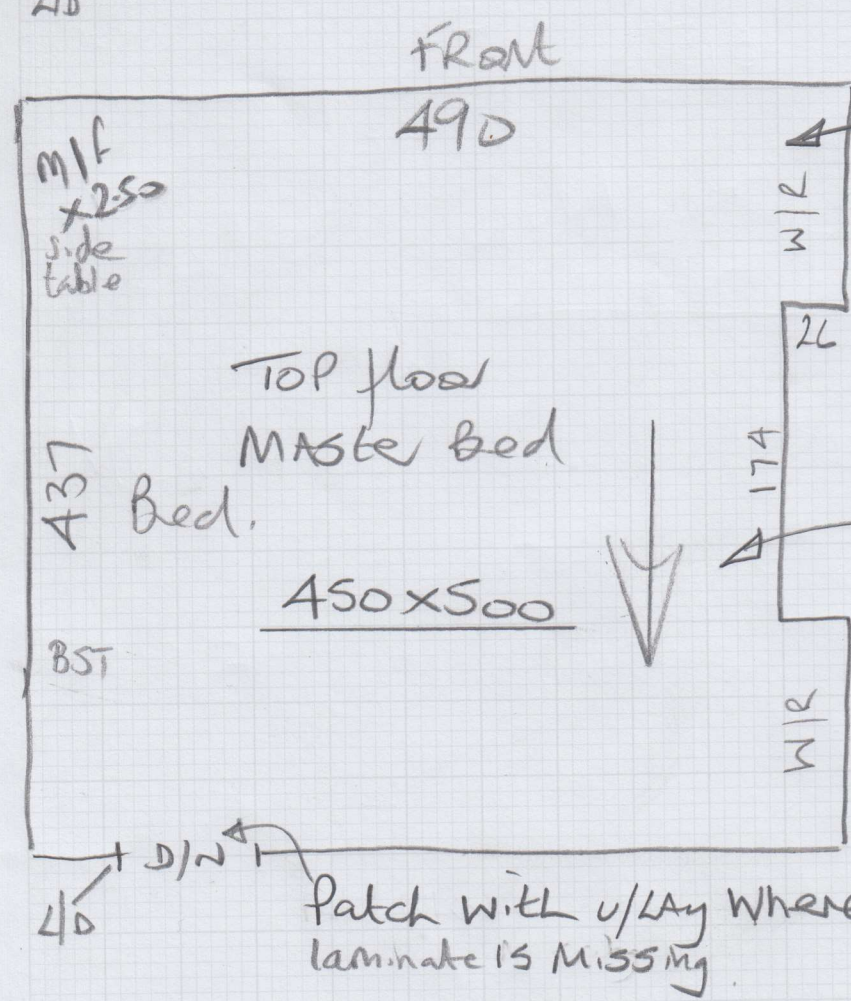 L/D
FRONT
490
M/F
x2.50
side
table
W/R
26
TOP floor
MASTER Bed
174
437
Bed.
450x500
BST
W/R
D/N
L/D
Patch with U/LAY Where
laminate is Missing